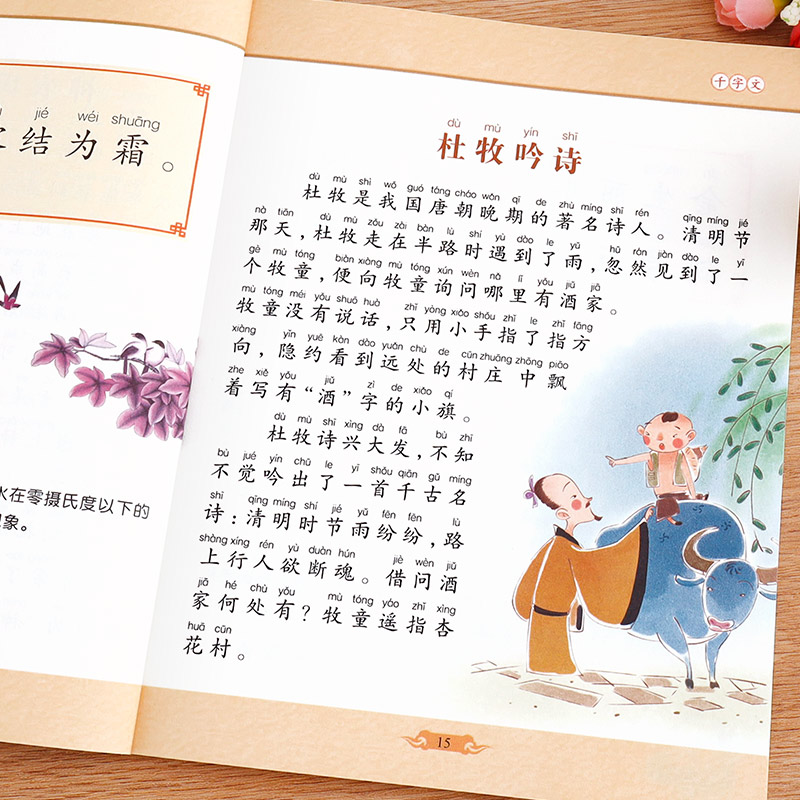 jié wéi shuāng
结为霜。
水在零摄氏度以下的
象。
千字文
dù mù yín shī
杜牧吟诗
dù mù shì wǒ guó táng cháo wǎn qī de zhù míng shī rén qīng míng jié
杜牧是我国唐朝晚期的著名诗人。清明节
nà tiān dù mù zǒu zài bàn lù shí yù dào le yǔ hū rán jiàn dào le yī
那天，杜牧走在半路时遇到了雨，忽然见到了一
gè mù tóng biàn xiàng mù tóng xún wèn nǎ lǐ yǒu jiǔ jiā
个牧童，便向牧童询问哪里有酒家。
mù tóng méi yǒu shuō huà zhǐ yòng xiǎo shǒu zhǐ le zhǐ fāng
牧童没有说话，只用小手指了指方
xiàng yǐn yuē kàn dào yuǎn chù de cūn zhuāng zhōng piāo
向，隐约看到远处的村庄 中飘
zhe xiě yǒu jiǔ zì de xiǎo qí
着写有“酒”字的小旗。
dù mù shī xìng dà fā bù zhī
杜牧诗兴大发，不知
bù jué yín chū le yī shǒu qiān gǔ míng
不觉吟出了一首千古名
shī qīng míng shí jié yǔ fēn fēn lù
诗：清明时节雨纷纷，路
shàng xíng rén yù duàn hún jiè wèn jiǔ
上行人欲断魂。借问酒
jiā hé chù yǒu mù tóng yáo zhǐ xìng
家何处有？牧童遥指杏
huā cūn
花村。
15